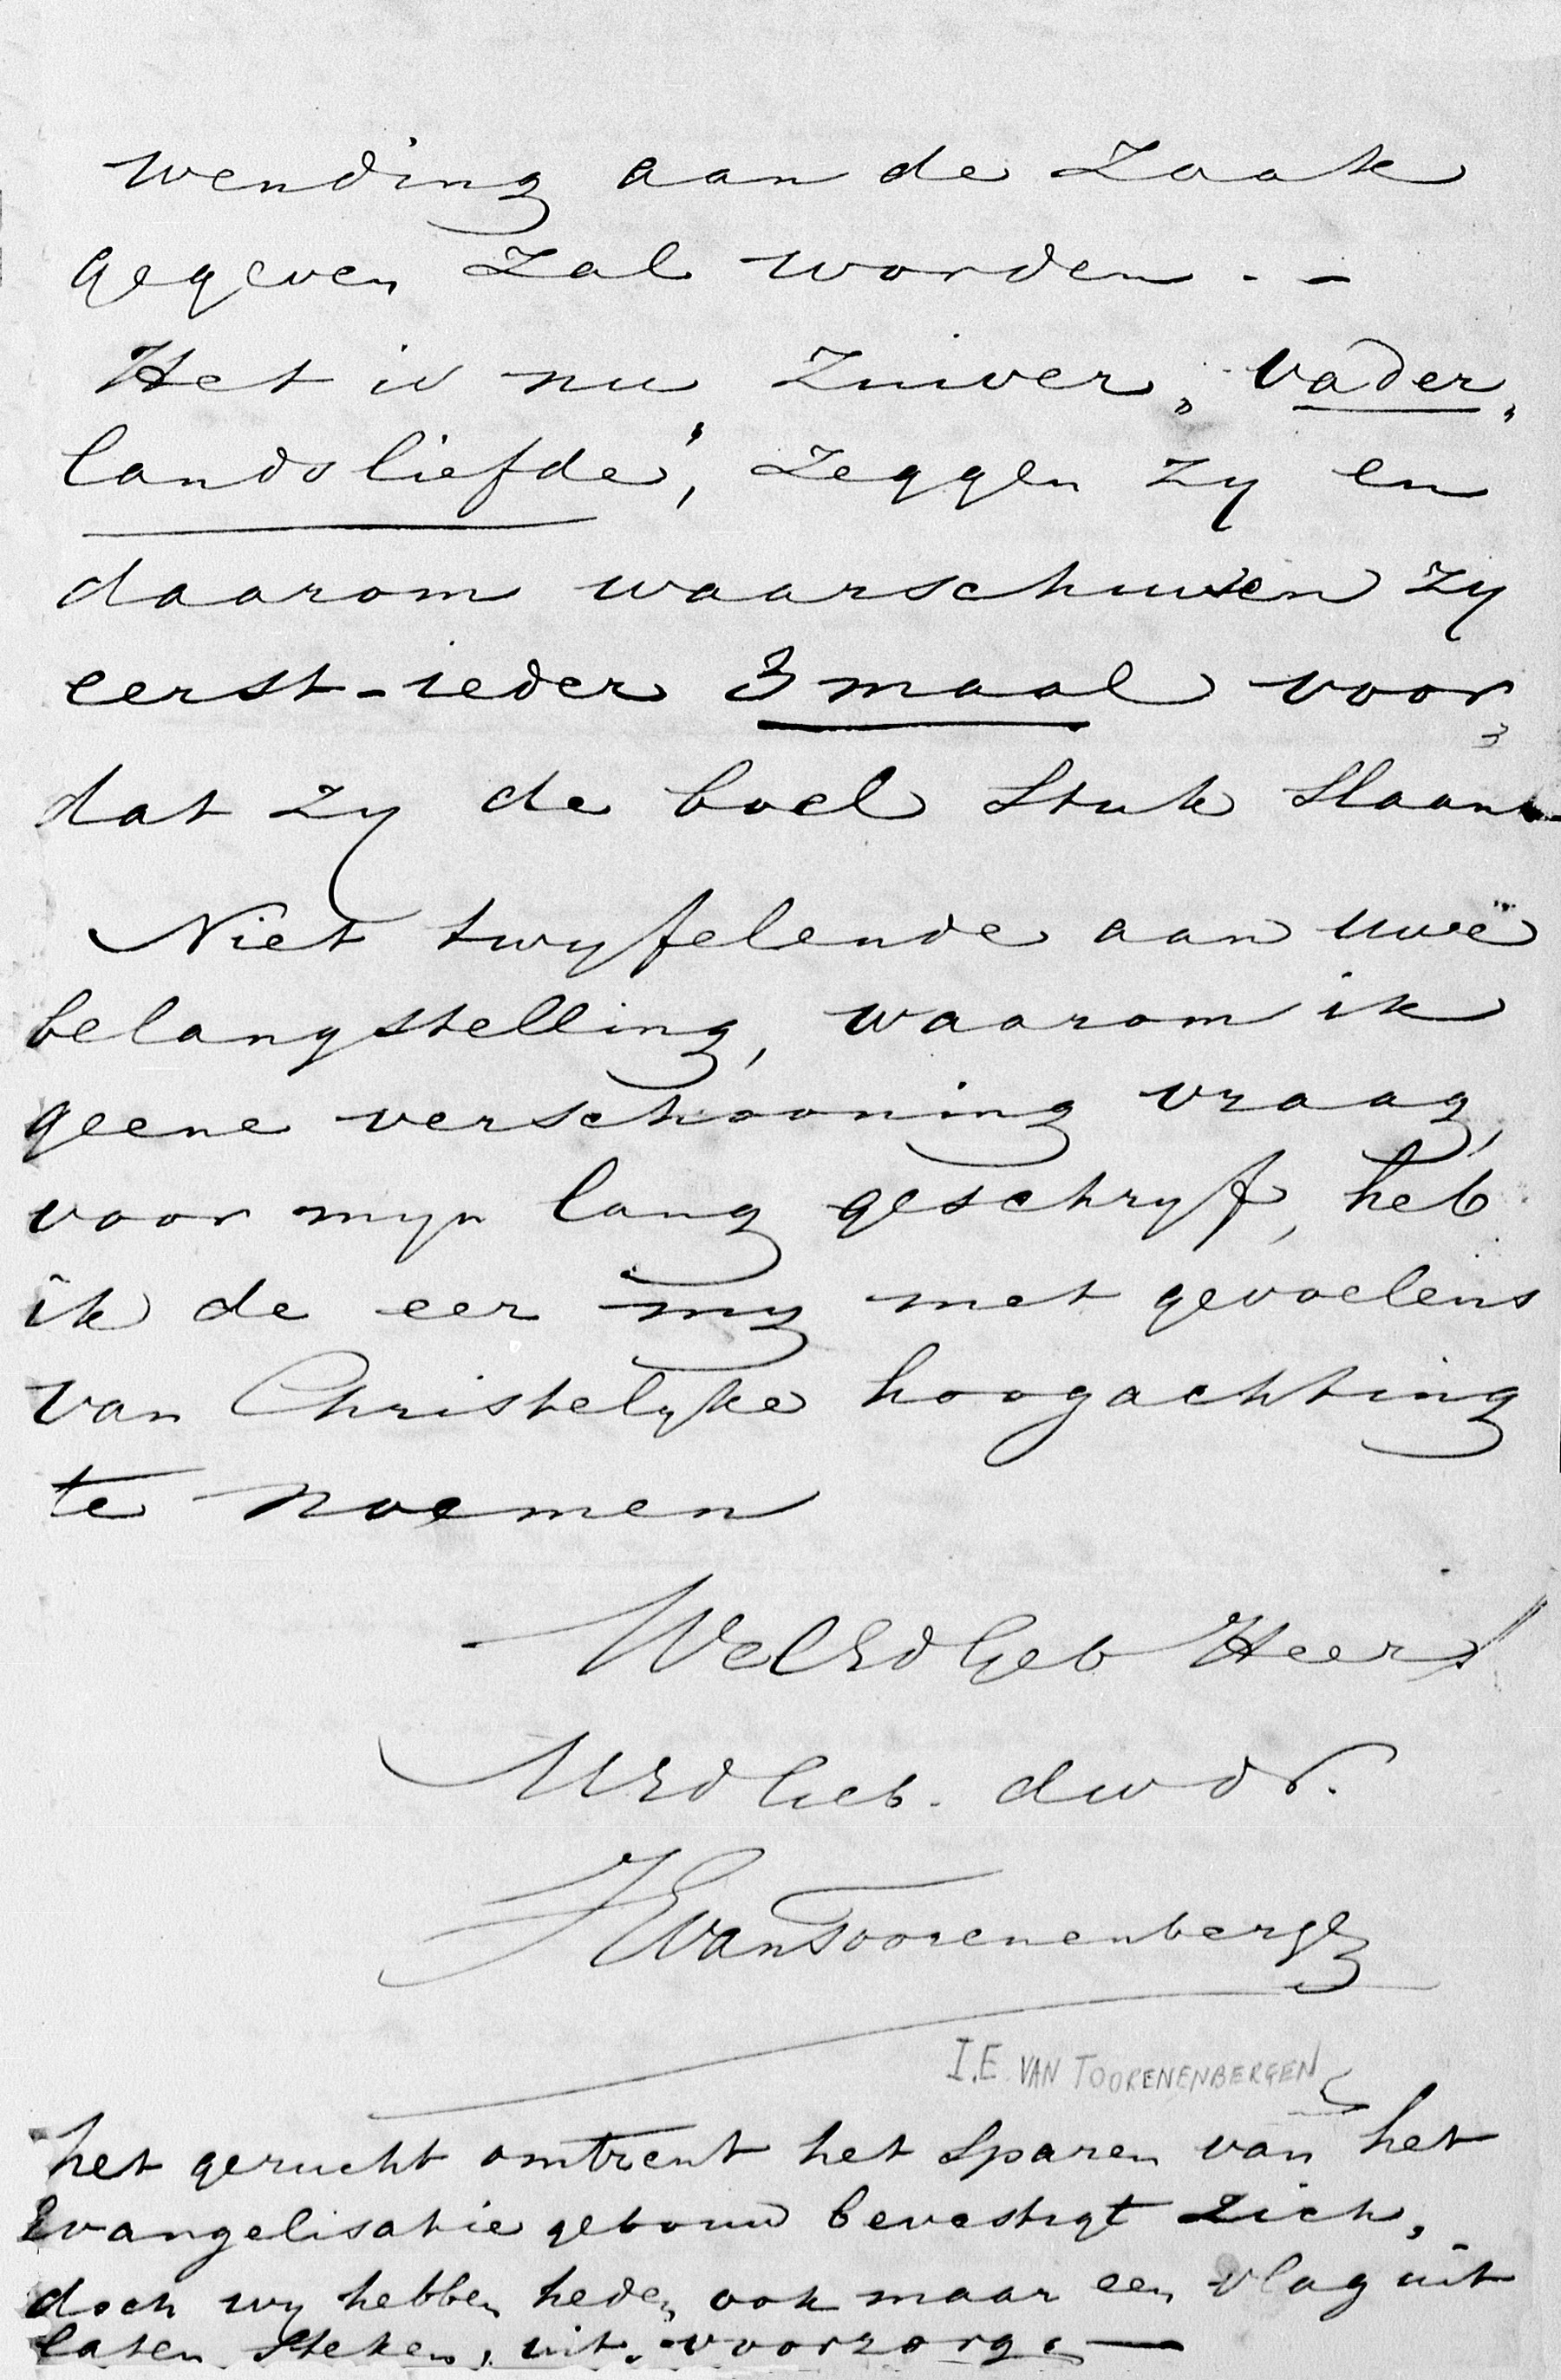 wending aan de zaak
gegeven zal worden. –
Het is nu, zuiver „vader„
landsliefde", zeggen zy en
daarom waarschuwen zy
eerst-ieder 3 maal voor„
dat zy de boel stuk slaan
Niet twyfelende aan uwe
belangstelling, waarom ik
geene verschooning vraag,
voor myn lang geschryf, heb
ik de eer my met gevoelens
van Christelyke hoogachting
te noemen
WelEdGeb Heer!
UEdGeb. dwdr.
J E van Toorenenbergen
I.E. VAN TOORENENBERGEN
het gerucht omtrent het sparen van het
Evangelisatie gebouw bevestigt zich,
doch wy hebben heden ook maar een vlag uit
laten steken, uit voorzorg. —